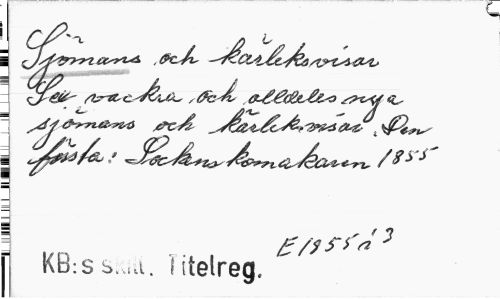 Sjömans och kärleksvisor
Sex vackra och alldeles nya
sjömans och kärleksvisor. Den
första: Sockenskomakaren 1855
E 1855 i 3
KB:s skill. Titelreg.